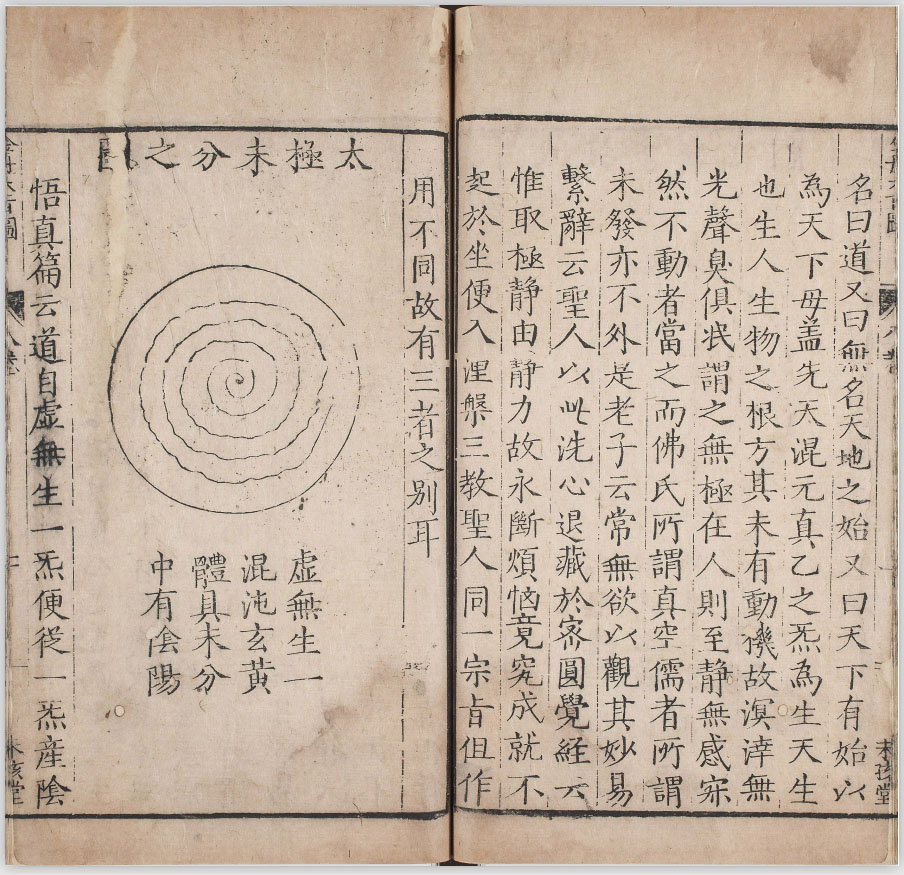 名曰道又曰無名天地之始又曰天下有始以
為天下母盖先天混元真乙之炁為生天生
也生人生物之根方其未有動機故溟涬無
光聲臭俱泯謂之無極在人則至靜無感寂
然不動者當之而佛氏所謂真空儒者所謂
未發亦不外是老子云常無欲以觀其妙易
繫辭云聖人以此洗心退藏於密圓覺經云
惟取極靜由靜力故永斷煩惱竟究成就不
起於坐便入涅槃三教聖人同一宗旨但作
未孩堂
用不同故有三者之别耳
太極未分之
虛無生一
混沌玄黃
體具未分
中有陰陽
悟真篇云道自虛無生一炁便從一炁產陰
未孩堂